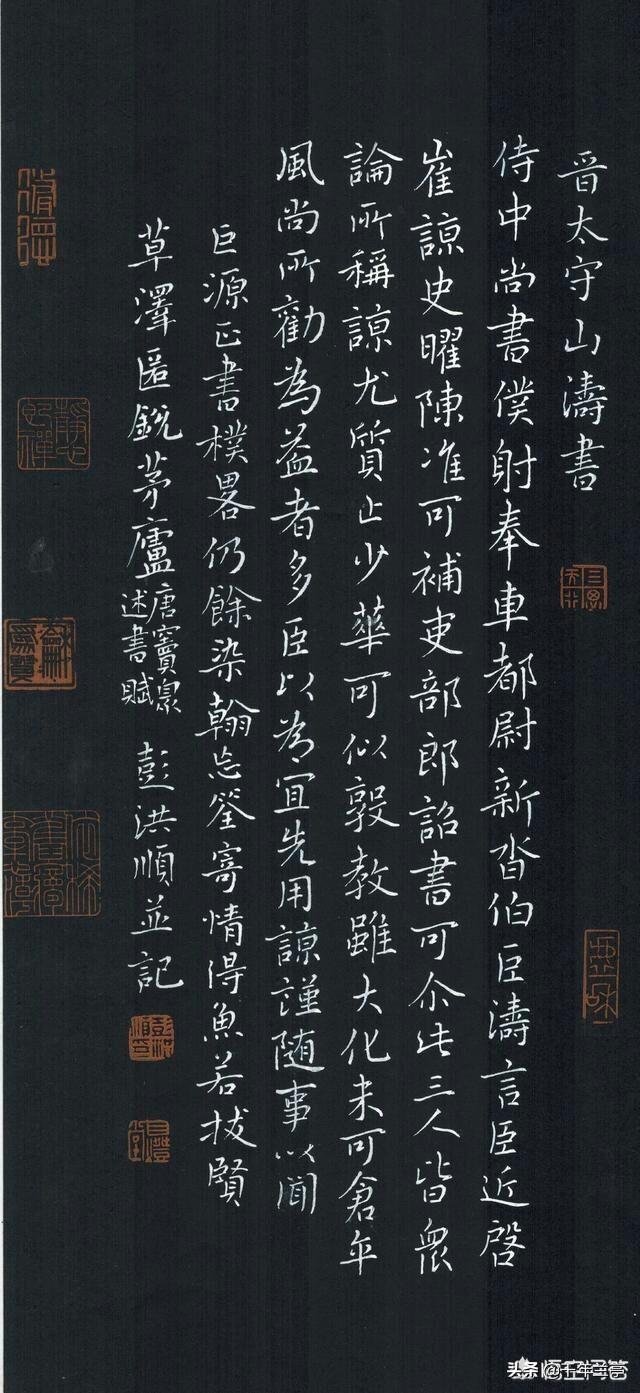 晉太守山濤書
侍中尚書僕射奉車都尉新沓伯臣濤言臣近啓
崔諒史曜陳准可補吏部郎詔書可尒此三人皆眾
論所稱諒尤質止少華可以敦教雖大化未可倉卒
風尚所勸為益者多臣以為宜先用諒謹随事以聞
巨源正書樸畧仍餘染翰忘筌寄情得魚若拔賢
草澤匿銳茅廬 唐竇臮述書賦 彭洪順並記
头条
悟空问答